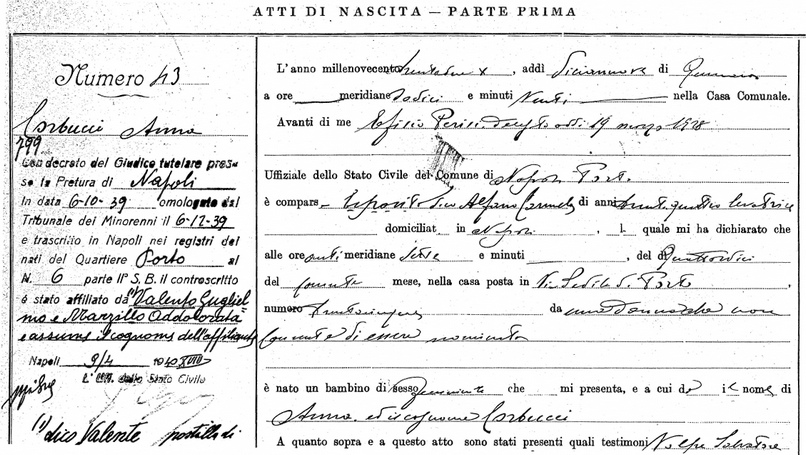 ATTI DI NASCITA — PARTE PRIMA
Numero 43
Corbucci Anna
799
Con decreto del Giudice tutelare pres-
so la Pretura di Napoli
In data 6-10-39 omologato dal
Tribunale dei Minorenni il 6-12-39
e trascritto in Napoli nei registri dei
nati del Quartiere Porto al
N. 6 parte IIª S. B. il controscritto
è stato affiliato da Valento Gugliel
mo e Marzillo Addolorata
e assume il cognome dell'affiliante
Napoli 9/4 1940 XVIII
dello Stato Civile
(1) dico Valente postilla di
L'anno millenovecento trentadue X, addì diciannove di Gennaio
a ore meridiane dodici e minuti venti nella Casa Comunale.
Avanti di me 19 marzo 1928
Uffiziale dello Stato Civile del Comune di Napoli Porto.
è comparsa Esposito Alfano Carmela di anni levatrice
domiciliata in Napoli, la quale mi ha dichiarato che
alle ore anti meridiane sette e minuti, del dì quattordici
del corrente mese, nella casa posta in Via Sedile di Porto
numero da una donna che non
consente di essere nominata
è nato un bambino di sesso femminile che mi presenta, e a cui dà il nome di
Anna ed il cognome Corbucci
A quanto sopra e a questo atto sono stati presenti quali testimoni Volpe Salvatore